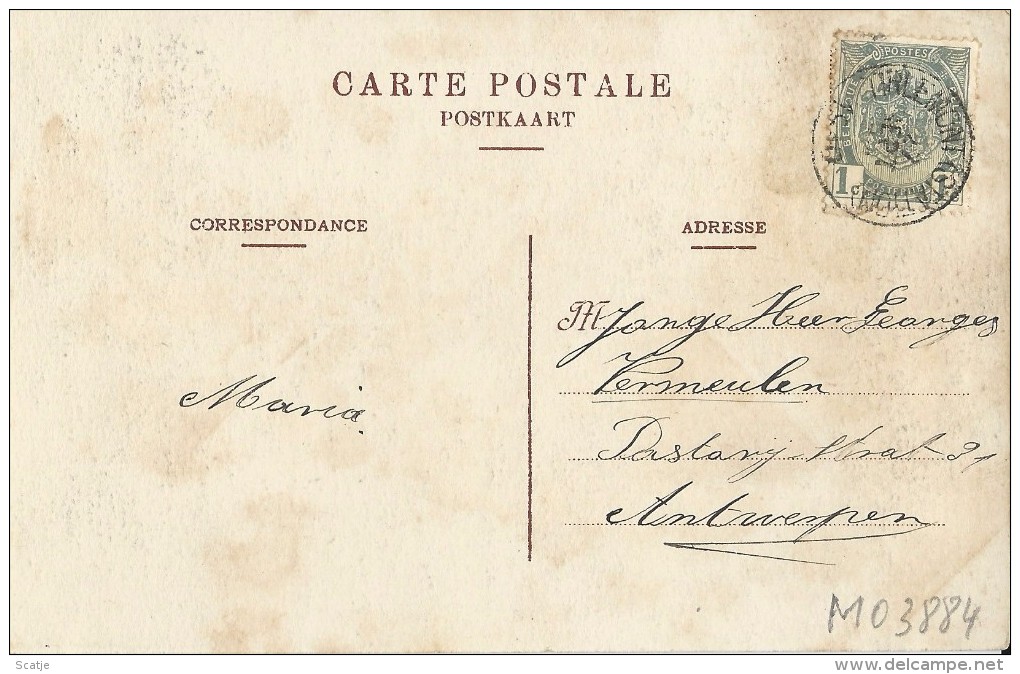 CARTE POSTALE
POSTKAART
CORRESPONDANCE
ADRESSE
POSTES
1c
Maria
M Jonge Heer Georges
Vermeulen
Pastorij Straat 21
Antwerpen
M03884
Scatje
www.delcampe.net